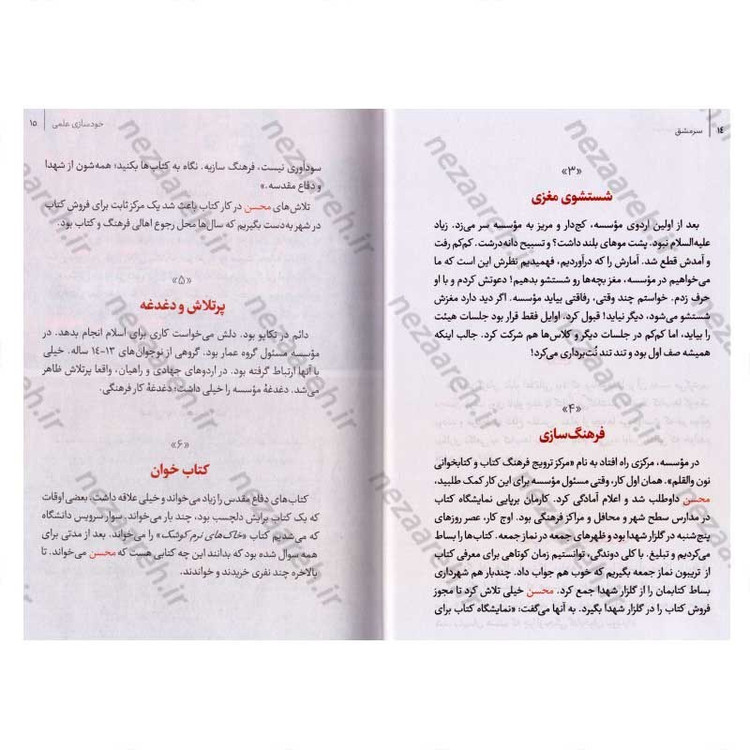 ١٤ | سرمشق
«۳»
شستشوی مغزی
بعد از اولین اردوی مؤسسه، کج‌دار و مریز به مؤسسه سر می‌زد. زیاد
علیه‌السلام نبود. پشت موهای بلند داشت؟ و تسبیح دانه‌درشت. کم‌کم رفت
و آمدش قطع شد. آمارش را که درآوردیم، فهمیدیم نظرش این است که ما
می‌خواهیم در مؤسسه، مغز بچه‌ها رو شستشو بدهیم! دعوتش کردم و با او
حرف زدم. خواستم چند وقتی، رفاقتی بیاید مؤسسه. اگر دید دارد مغزش
شستشو می‌شود، دیگر نیاید! قبول کرد. اوایل فقط قرار بود جلسات هیئت
را بیاید، اما کم‌کم در جلسات دیگر و کلاس‌ها هم شرکت کرد. جالب اینکه
همیشه صف اول بود و تند تند نُت‌برداری می‌کرد!
«۴»
فرهنگ‌سازی
در مؤسسه، مرکزی راه افتاد به نام «مرکز ترویج فرهنگ کتاب و کتابخوانی
نون والقلم». همان اول کار، وقتی مسئول مؤسسه برای این کار کمک طلبید،
محسن داوطلب شد و اعلام آمادگی کرد. کارمان برپایی نمایشگاه کتاب
در مدارس سطح شهر و محافل و مراکز فرهنگی بود. اوج کار، عصر روزهای
پنج‌شنبه در گلزار شهدا بود و ظهرهای جمعه در نماز جمعه. کتاب‌ها را بساط
می‌کردیم و تبلیغ. با کلی دوندگی، توانستیم زمان کوتاهی برای معرفی کتاب
از تریبون نماز جمعه بگیریم که خوب هم جواب داد. چندبار هم شهرداری
بساط کتابمان را از گلزار شهدا جمع کرد. محسن خیلی تلاش کرد تا مجوز
فروش کتاب را در گلزار شهدا بگیرد. به آنها می‌گفت: «نمایشگاه کتاب برای
خودسازی علمی | ۱۵
سودآوری نیست، فرهنگ سازیه. نگاه به کتاب‌ها بکنید؛ همه‌شون از شهدا
و دفاع مقدسه.»
تلاش‌های محسن در کار کتاب باعث شد یک مرکز ثابت برای فروش کتاب
در شهر به‌دست بگیریم که سال‌ها محل رجوع اهالی فرهنگ و کتاب بود.
«۵»
پرتلاش و دغدغه
دائم در تکاپو بود. دلش می‌خواست کاری برای اسلام انجام بدهد. در
مؤسسه مسئول گروه عمار بود. گروهی از نوجوان‌های ۱۳-۱٤ ساله. خیلی
با آنها ارتباط گرفته بود. در اردوهای جهادی و راهیان، واقعا پرتلاش ظاهر
می‌شد. دغدغهٔ مؤسسه را خیلی داشت؛ دغدغهٔ کار فرهنگی.
«۶»
کتاب خوان
کتاب‌های دفاع مقدس را زیاد می‌خواند و خیلی علاقه داشت. بعضی اوقات
که یک کتاب برایش دلچسب بود، چند بار می‌خواند. سوار سرویس دانشگاه
که می‌شدیم کتاب «خاک‌های نرم کوشک» را می‌خواند. بعد از مدتی برای
همه سوال شده بود که بدانند این چه کتابی هست که محسن می‌خواند. تا
بالاخره چند نفری خریدند و خواندند.
nezaareh.ir